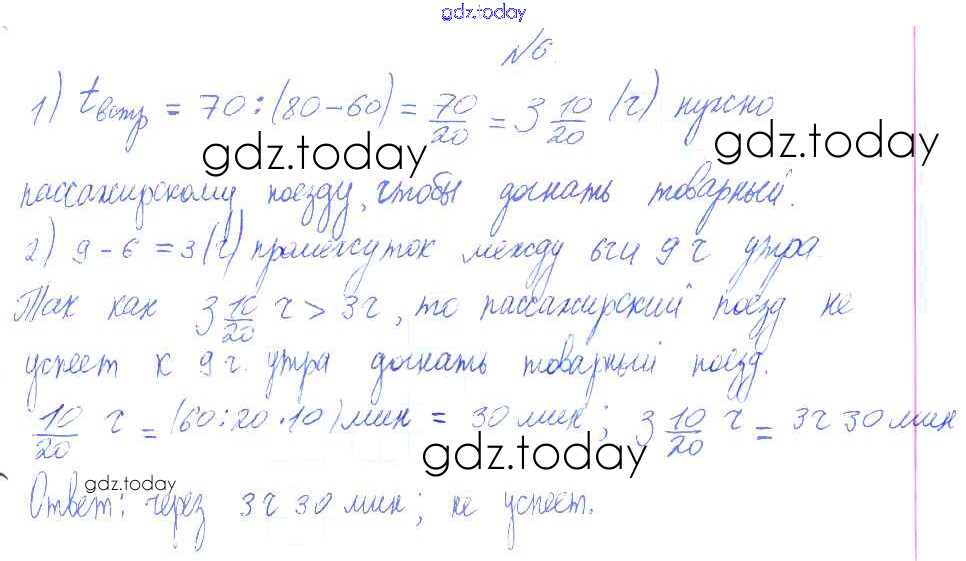 gdz.today
№6.
1) tвстр = 70:(80-60) = 70/20 = 3 10/20 (ч) нужно
gdz.today gdz.today
пассажирскому поезду, чтобы догнать товарный.
2) 9-6=3(ч) промежуток между 6ч и 9ч утра.
Так как 3 10/20 ч > 3ч, то пассажирский поезд не
успеет к 9ч. утра догнать товарный поезд.
10/20 ч = (60:20·10) мин = 30 мин; 3 10/20 ч = 3ч 30 мин
gdz.today
gdz.today
Ответ: через 3ч 30 мин; не успеет.